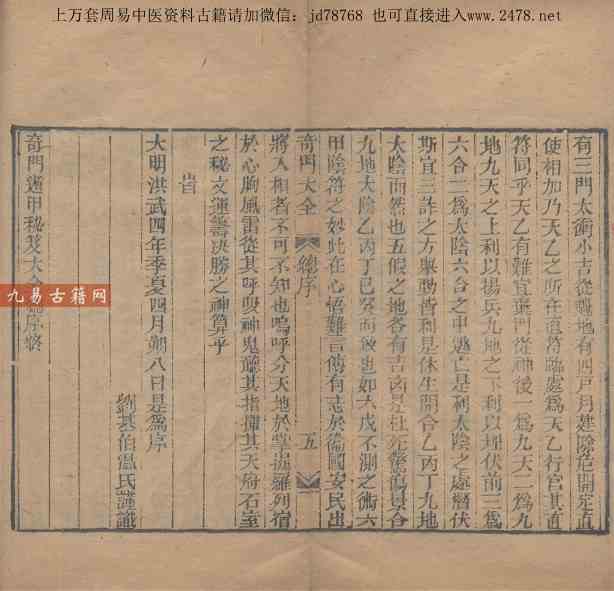 上万套周易中医资料古籍请加微信：jd78768 也可直接进入www.2478.net
有三門太衝小吉從魁地有四戶月建除危開定直
使相加乃天乙之所在直符臨處為天乙行宮其直
符同乎天乙有難宜棄門從神後一為九天二為九
地九天之上利以揚兵九地之下利以埋伏前三為
六合二為太陰六合之中逃亡是利太陰之處潛伏
斯宜三詐之方舉動皆利是休生開合乙丙丁九地
太陰而然也五假之地各有吉凶是杜死驚傷景合
九地太陰乙丙丁己癸而敘也如六戊不測之術六
甲陰符之妙此在心悟難言傳有志於衞國安民出
奇門大全 總序 五
將入相者不可不知也嗚呼分天地於掌握羅列宿
於心胸風雷從其呼吸神鬼聽其指揮其天府石室
之秘文運籌決勝之神算乎
旹
大明洪武四年季夏四月朔八日是為序
劉基伯溫氏謹識
奇門遁甲秘笈大全總序終
九易古籍网